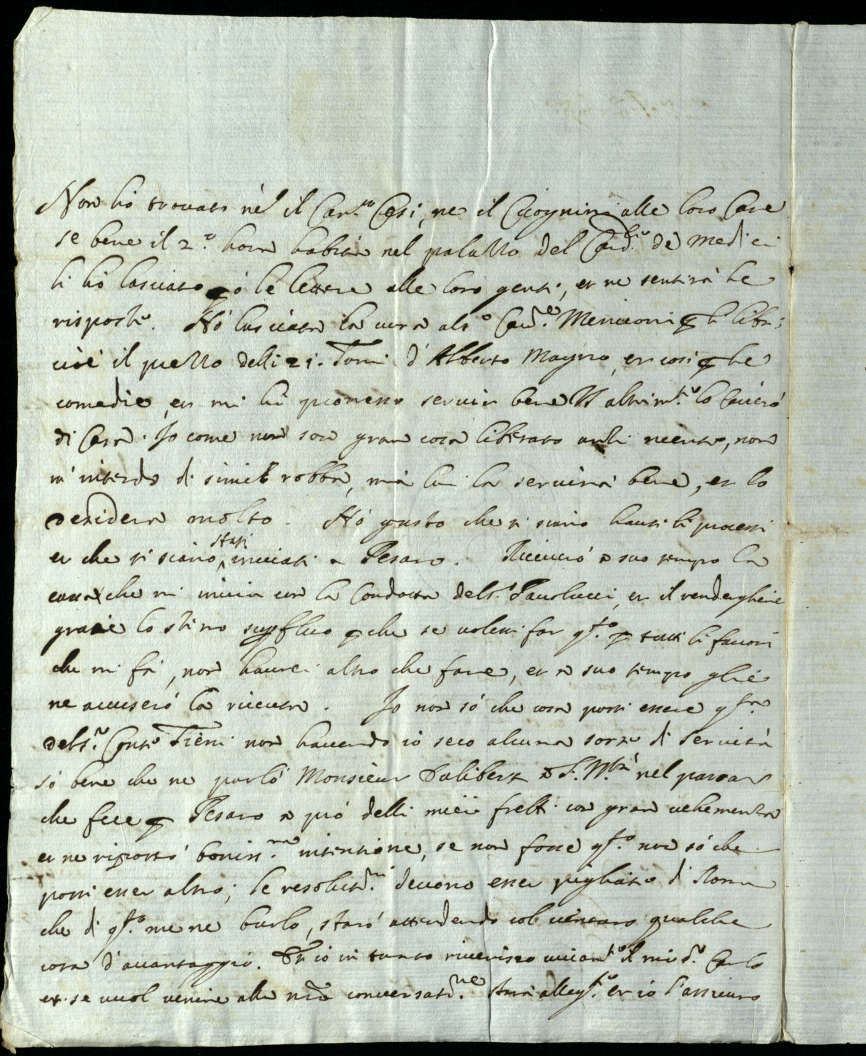 Non hò trovato nè il Can.co Cesi, ne il Cicognini alle loro Case
se bene il 2.° hora habita nel palazzo del Card.le de Medici
li hò lasciato però le lettere alle loro genti, et ne sentirà le
risposte. Hò lasciata la cura al s.r Cav.re Menicconi p li libri
cioè il prezzo delli 21. Tomi d'Alberto Magno, et così p le
comedie, et mi hà promesso servir bene V.S. altrim.te lo caverò
di Casa. Io come non son gran cosa litterato nelli, non
m'intendo di simil robba, mà lui la servirà bene, et lo
desidera molto. Hò gusto che si siano hauti li processi
et che si siano stati inviati a Pesaro. Riceverò a suo tempo la
cassa che mi invia con la Condotta del s.r Paolucci, et il rendergliene
grazie lo stimo superfluo p che se volessi far q.to p tutti li favori
che mi fà, non haverei altro che fare, et a suo tempo gliè
ne accuserò la ricevuta. Io non sò che cosa possi essere q.sta
del s.r Conte Fieni non havendo io seco alcuna sorte di servitù
sò bene che ne parlò Monsieur Dalibert a S. M.tà nel passar
che fece p Pesaro a prò delli miei frelli con gran vehemenza
et ne riportò boniss.ma intentione, se non fosse q.to non sò che
possi esser altro; le resolut.ni devono esser pigliate di Roma
che di q.to me ne burlo, starò attendendo col venturo qualche
cosa d'avantaggio. Et io in tanto riverisco il mio s.r Carlo
et se vuol venire alle n.re conversat.ne starà alleg.te et io l'assicuro